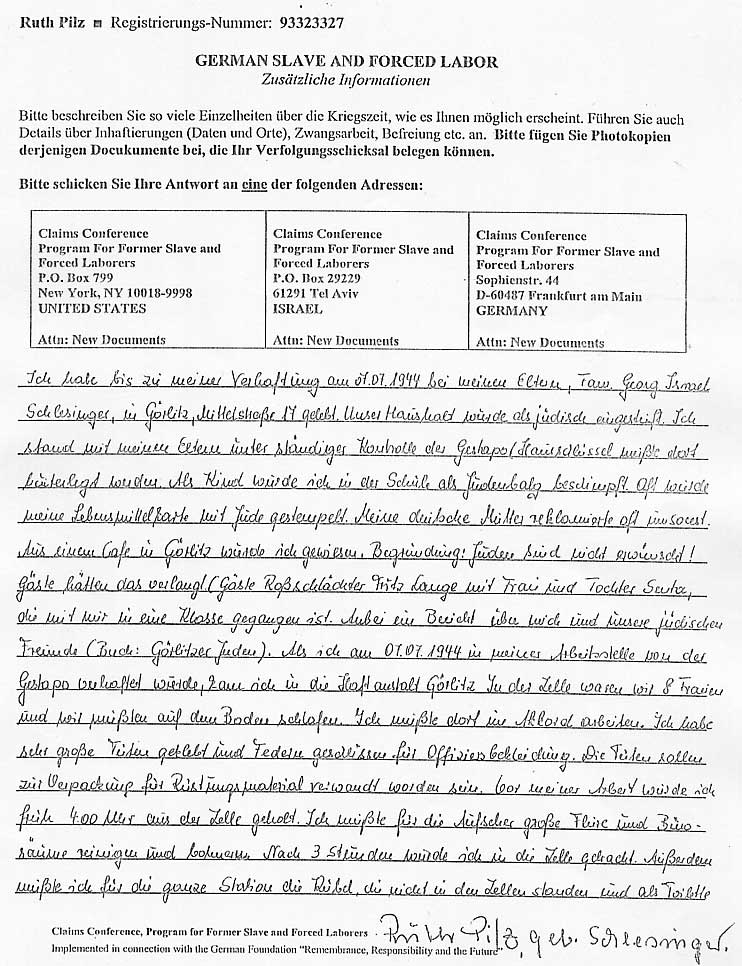 Ruth Pilz ■ Registrierungs-Nummer: 93323327
GERMAN SLAVE AND FORCED LABOR
Zusätzliche Informationen
Bitte beschreiben Sie so viele Einzelheiten über die Kriegszeit, wie es Ihnen möglich erscheint. Führen Sie auch
Details über Inhaftierungen (Daten und Orte), Zwangsarbeit, Befreiung etc. an. Bitte fügen Sie Photokopien
derjenigen Docukumente bei, die Ihr Verfolgungsschicksal belegen können.
Bitte schicken Sie Ihre Antwort an eine der folgenden Adressen:
Claims Conference
Program For Former Slave and
Forced Laborers
P.O. Box 799
New York, NY 10018-9998
UNITED STATES
Attn: New Documents
Claims Conference
Program For Former Slave and
Forced Laborers
P.O. Box 29229
61291 Tel Aviv
ISRAEL
Attn: New Documents
Claims Conference
Program For Former Slave and
Forced Laborers
Sophienstr. 44
D-60487 Frankfurt am Main
GERMANY
Attn: New Documents
Ich habe bis zu meiner Verhaftung am 07.07.1944 bei meinen Eltern, Fam. Georg Israel
Schlesinger, in Görlitz, Mittelstraße 17 gelebt. Unser Haushalt wurde als jüdisch eingestuft. Ich
stand mit meinen Eltern unter ständiger Kontrolle der Gestapo (Hausschlüssel mußte dort
hinterlegt werden. Als Kind wurde ich in der Schule als Judenbalg beschimpft. Oft wurde
meine Lebensmittelkarte mit Jude gestempelt. Meine deutsche Mutter reklamierte oft umsonst.
Aus einem Cafe in Görlitz wurde ich gewiesen, Begründung: Juden sind nicht erwünscht!
Gäste hätten das verlangt (Gäste Roßschlächter Fritz Lange mit Frau und Tochter Senta,
die mit mir in eine Klasse gegangen ist. Anbei ein Bericht über mich und unsere jüdischen
Freunde (Buch: Görlitzer Juden). Als ich am 07.07.1944 in meiner Arbeitsstelle von der
Gestapo verhaftet wurde, kam ich in die Haftanstalt Görlitz. In der Zelle waren wir 8 Frauen
und wir mußten auf dem Boden schlafen. Ich mußte dort im Akkord arbeiten. Ich habe
sehr große Tüten geklebt und Federn geschlissen für Offiziersbekleidung. Die Tüten sollen
zur Verpackung für Rüstungsmaterial verwandt worden sein. Vor meiner Arbeit wurde ich
früh 4.00 Uhr aus der Zelle geholt. Ich mußte für die Aufseher große Flure und Büro-
räume reinigen und bohnern. Nach 3 Stunden wurde ich in die Zelle gebracht. Außerdem
mußte ich für die ganze Station die Kübel, die nicht in den Zellen standen und als Toilette
Claims Conference, Program for Former Slave and Forced Laborers
Implemented in connection with the German Foundation "Remembrance, Responsibility and the Future"
Ruth Pilz, geb. Schlesinger.